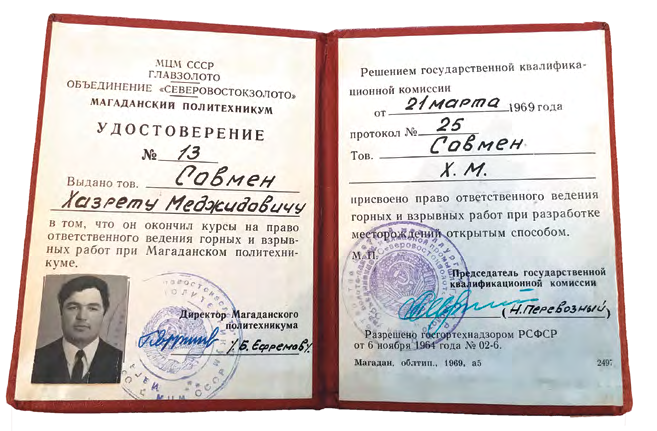 МЦМ СССР
ГЛАВЗОЛОТО
ОБЪЕДИНЕНИЕ «СЕВЕРОВОСТОКЗОЛОТО»
МАГАДАНСКИЙ ПОЛИТЕХНИКУМ
УДОСТОВЕРЕНИЕ
№ 13
Выдано тов. Савмен
Хазрету Меджидовичу
в том, что он окончил курсы на право
ответственного ведения горных и взрыв-
ных работ при Магаданском политехни-
куме.
Директор Магаданского
политехникума
/Б. Ефремов/
Решением государственной квалифика-
ционной комиссии
от 21 марта 1969 года
протокол № 25
Тов. Савмен
Х. М.
присвоено право ответственного ведения
горных и взрывных работ при разработке
месторождений открытым способом.
М.П.
Председатель государственной
квалификационной комиссии
(Н. Перевозный)
Разрешено госгортехнадзором РСФСР
от 6 ноября 1964 года № 02-6.
Магадан, облтип., 1969, а5 2497